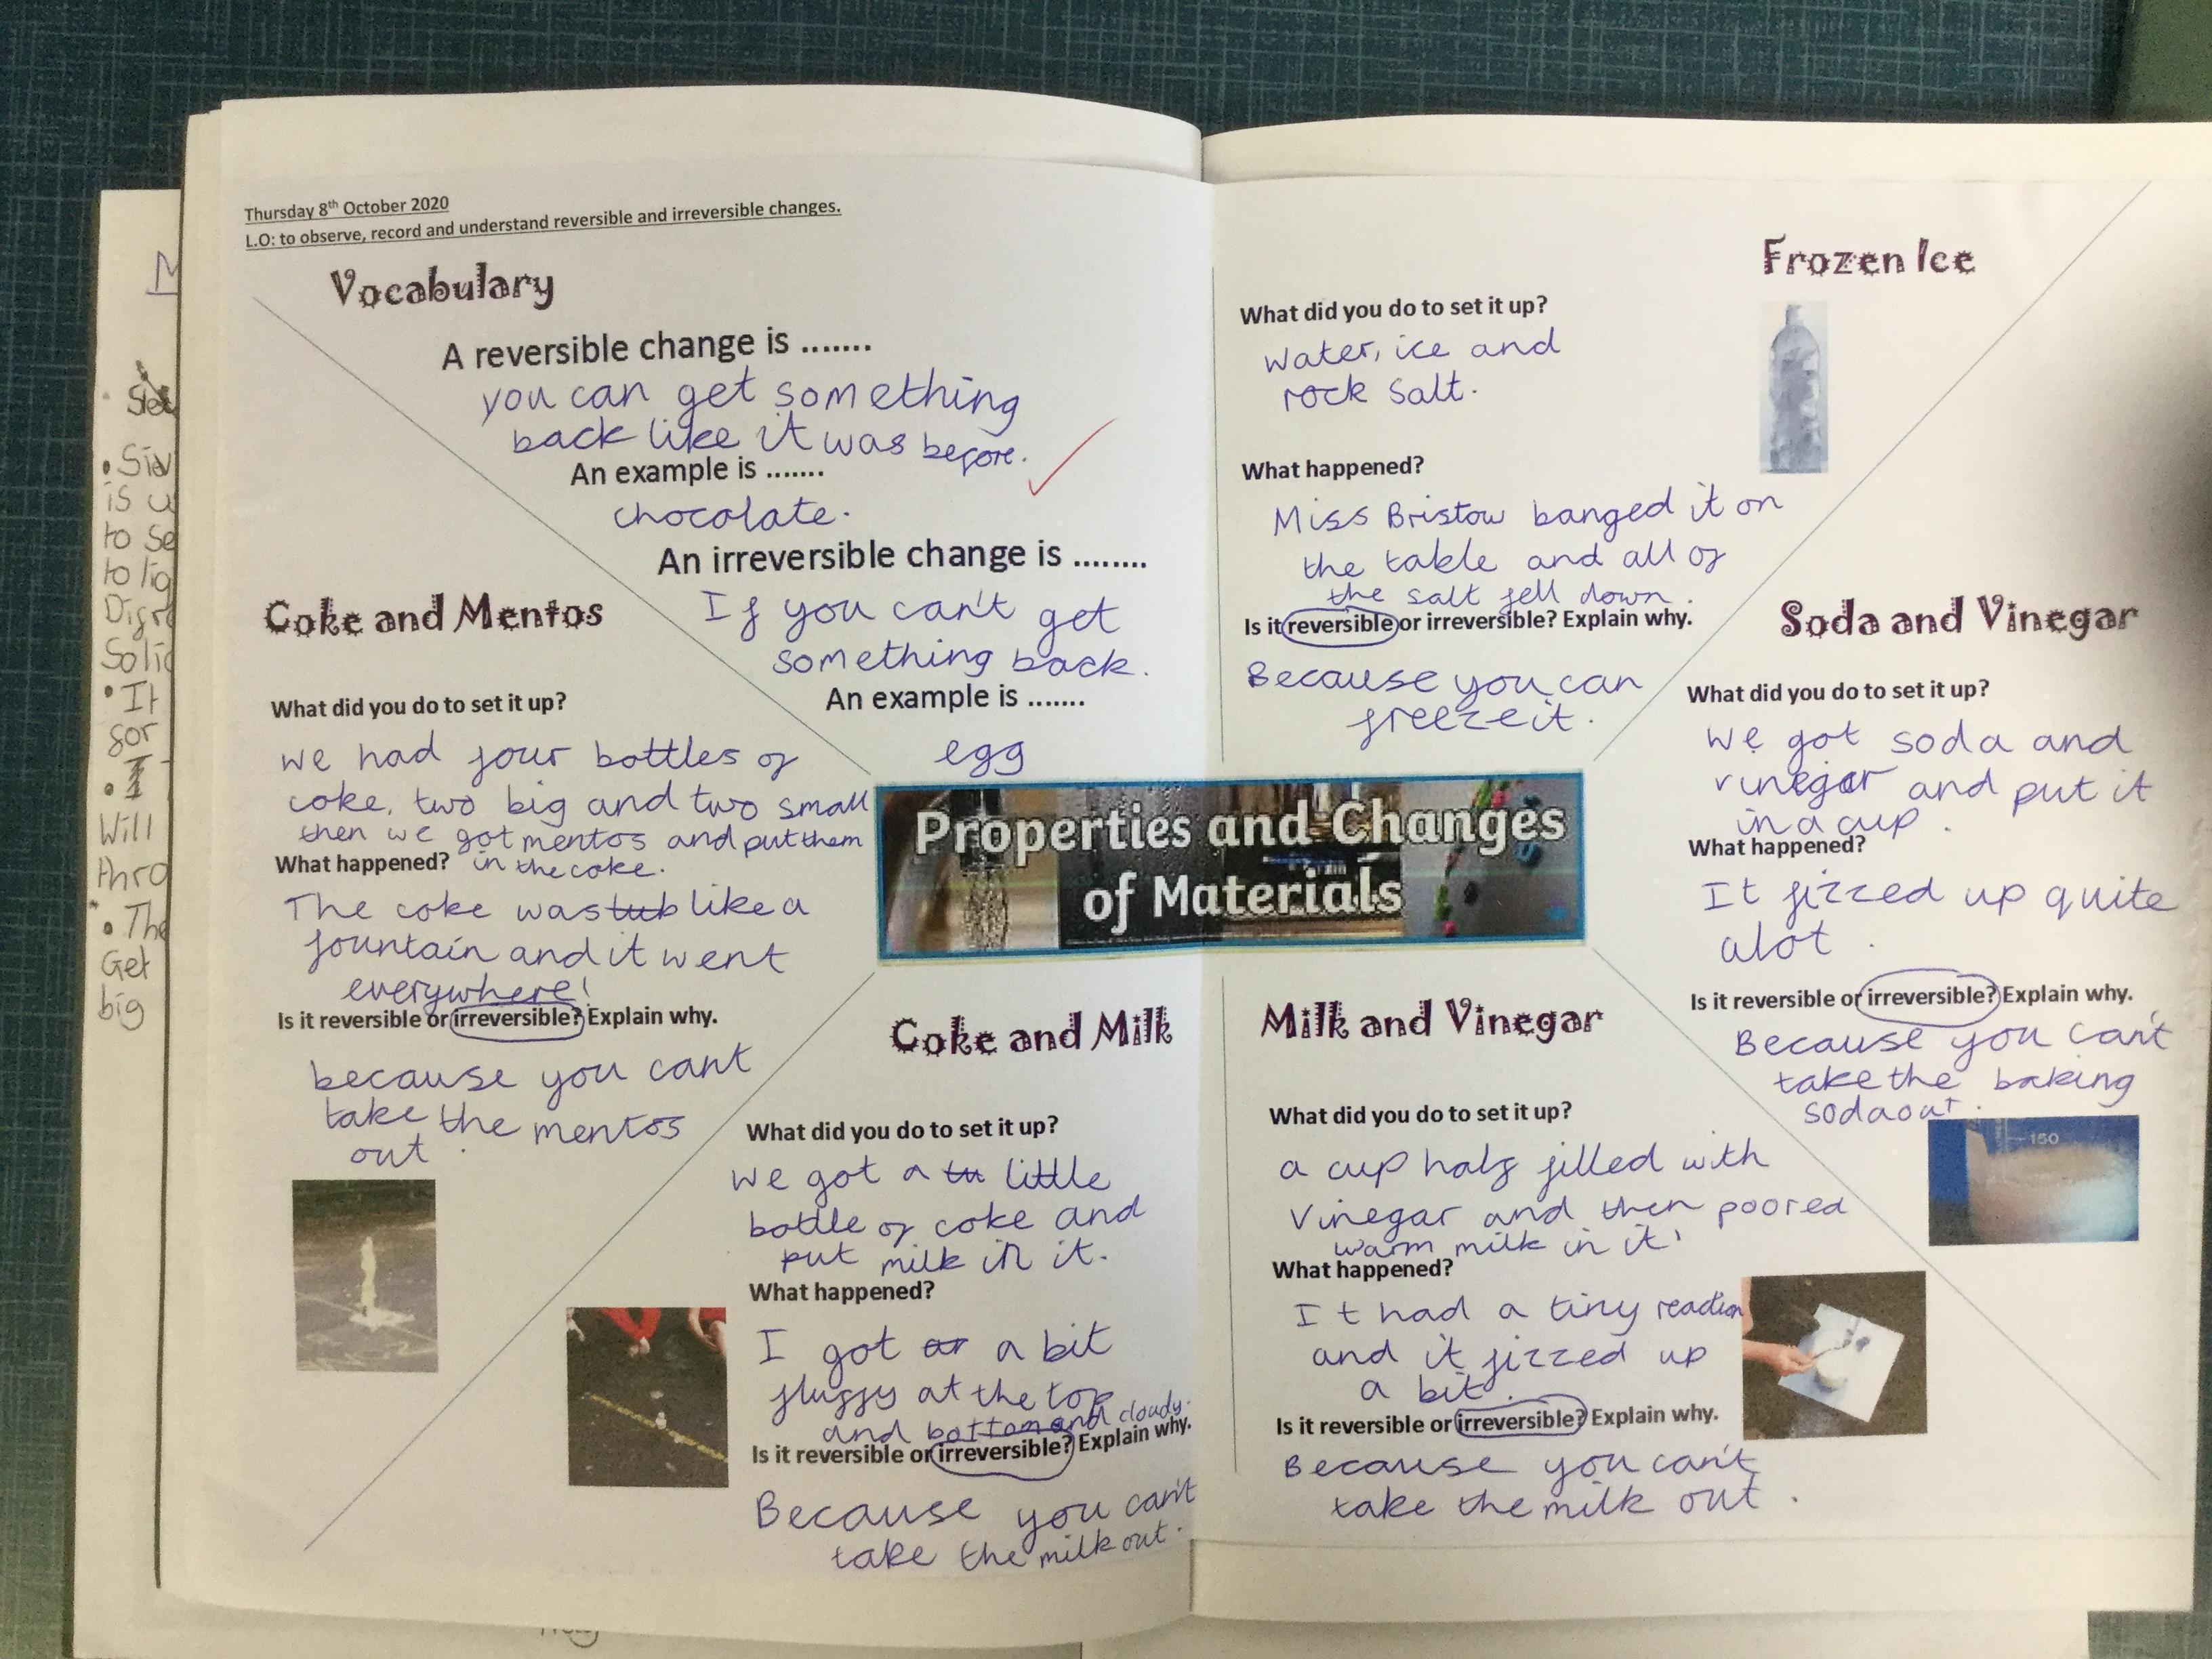 Thursday 8th October 2020
L.O: to observe, record and understand reversible and irreversible changes.
Vocabulary
A reversible change is .......
you can get something
back like it was before.
An example is .......
chocolate.
An irreversible change is ........
If you can't get
something back.
An example is .......
egg
Coke and Mentos
What did you do to set it up?
we had four bottles of
coke, two big and two small
then we got mentos and put them
What happened? in the coke.
The coke was tub like a
fountain and it went
everywhere!
Is it reversible or irreversible? Explain why.
because you cant
take the mentos
out.
Coke and Milk
What did you do to set it up?
we got a tu little
bottle of coke and
put milk in it.
What happened?
I got ar a bit
fluffy at the top
and bottom and cloudy.
Is it reversible or irreversible? Explain why.
Because you can't
take the milk out.
Properties and Changes
of Materials
Frozen Ice
What did you do to set it up?
water, ice and
rock salt.
What happened?
Miss Bristow banged it on
the table and all of
the salt fell down.
Is it reversible or irreversible? Explain why.
Because you can
freeze it.
Soda and Vinegar
What did you do to set it up?
we got soda and
vinegar and put it
in a cup.
What happened?
It fizzed up quite
alot.
Is it reversible or irreversible? Explain why.
Because you can't
take the baking
soda out.
150
Milk and Vinegar
What did you do to set it up?
a cup half filled with
vinegar and then poored
warm milk in it.
What happened?
It had a tiny reaction
and it fizzed up
a bit.
Is it reversible or irreversible? Explain why.
Because you can't
take the milk out.
M
• Siev
is u
to se
to lig
Solid
• It
for
• I
Will
thro
• The
Get
big